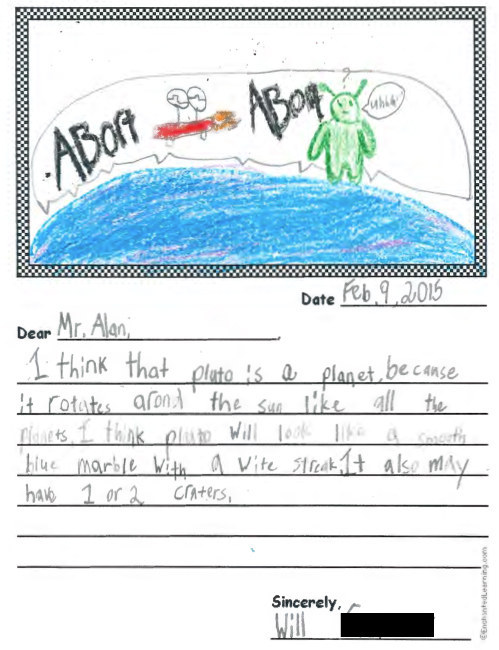 ABort
ABort
?
uhhh
Date Feb, 9, 2015
Dear Mr. Alan,
I think that pluto is a planet, because
it rotates arond the sun like all the
planets. I think pluto will look like a smooth
blue marble with a wite streak. It also may
have 1 or 2 craters.
Sincerely,
Will
©EnchantedLearning.com